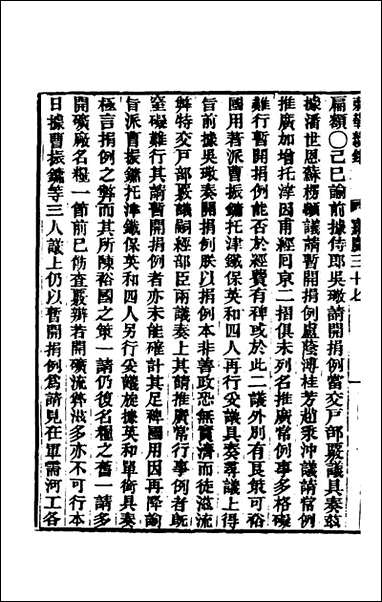 東華續錄 嘉慶三十七
扁額○己巳諭前據侍郎吳璥請開捐例當交戶部嚴議具奏茲
據潘世恩蘇楞額議請暫開捐例盧蔭溥桂芳趙秉沖議請常例
推廣加增托津因甫經囘京二摺俱未列名推廣常例事多格礙
難行暫開捐例能否於經費有裨或於此二議外別有良策可裕
國用著派曹振鏞托津鐵保英和四人再行妥議具奏尋議上得
旨前據吳璥奏開捐例朕以捐例本非善政恐無實濟而徒滋流
弊特交戶部嚴議嗣經部臣兩議奏上其請推廣常行事例者旣
窒礙難行其請暫開捐例者亦未能確計其足裨國用因再降諭
旨派曹振鏞托津鐵保英和四人另行妥議旋據英和單銜具奏
極言捐例之弊而其所陳裕國之策一請仍復名糧之舊一請多
開礦廠名糧一節前已飭查覈辦若開礦流弊滋多亦不可行本
日據曹振鏞等三人議上仍以暫開捐例爲請見在軍需河工各